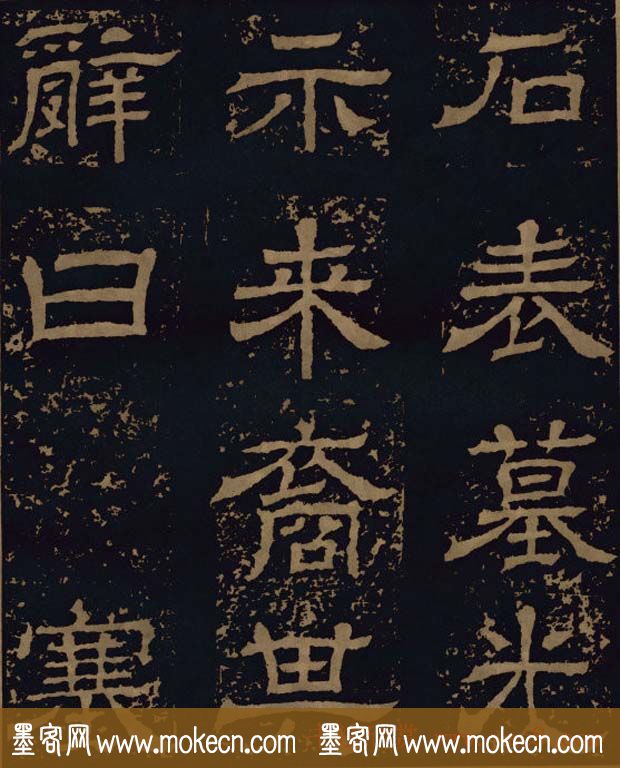 石表墓光
示来裔其
辭曰
墨客网 www.mokecn.com 墨客网 www.mokecn.com